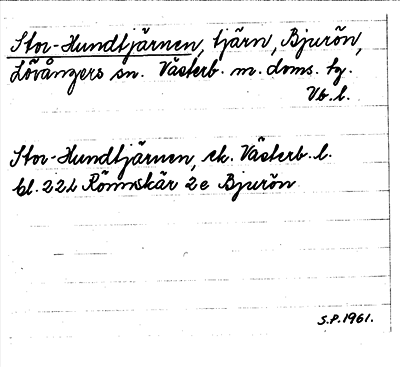 Stor-Hundtjärnen, tjärn, Bjurön,
Lövångers sn. Västerb. m. doms. tg.
Vb. l.
Stor-Hundtjärnen, ek. Västerb. l.
bl. 22L Rönnskär 2e Bjurön
S.P. 1961.